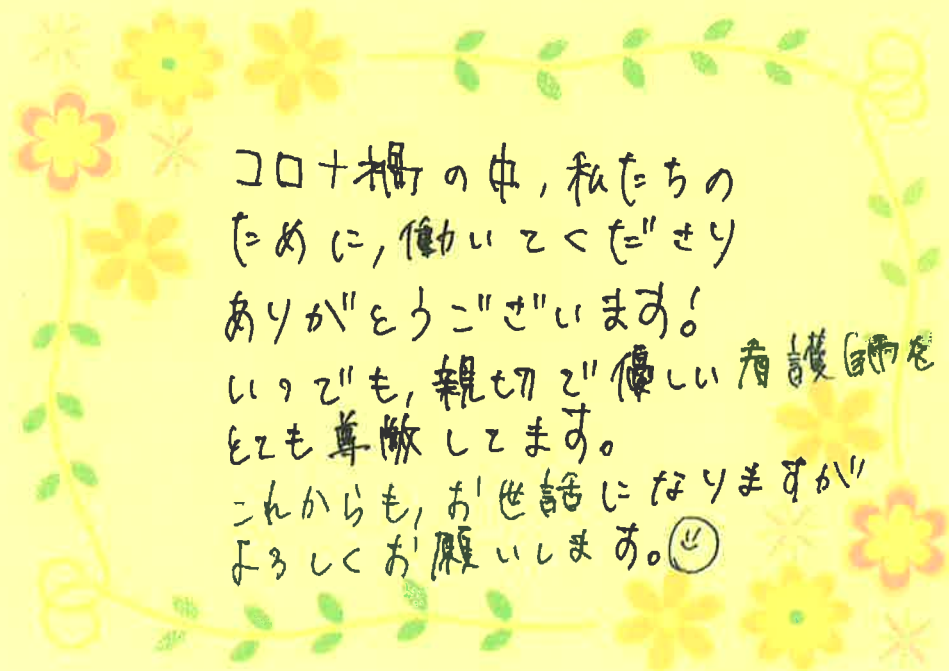 コロナ禍の中,私たちの
ために,働いてくださり
ありがとうございます!
いつでも,親切で優しい看護師を
とても尊敬してます。
これからも,お世話になりますが
よろしくお願いします。